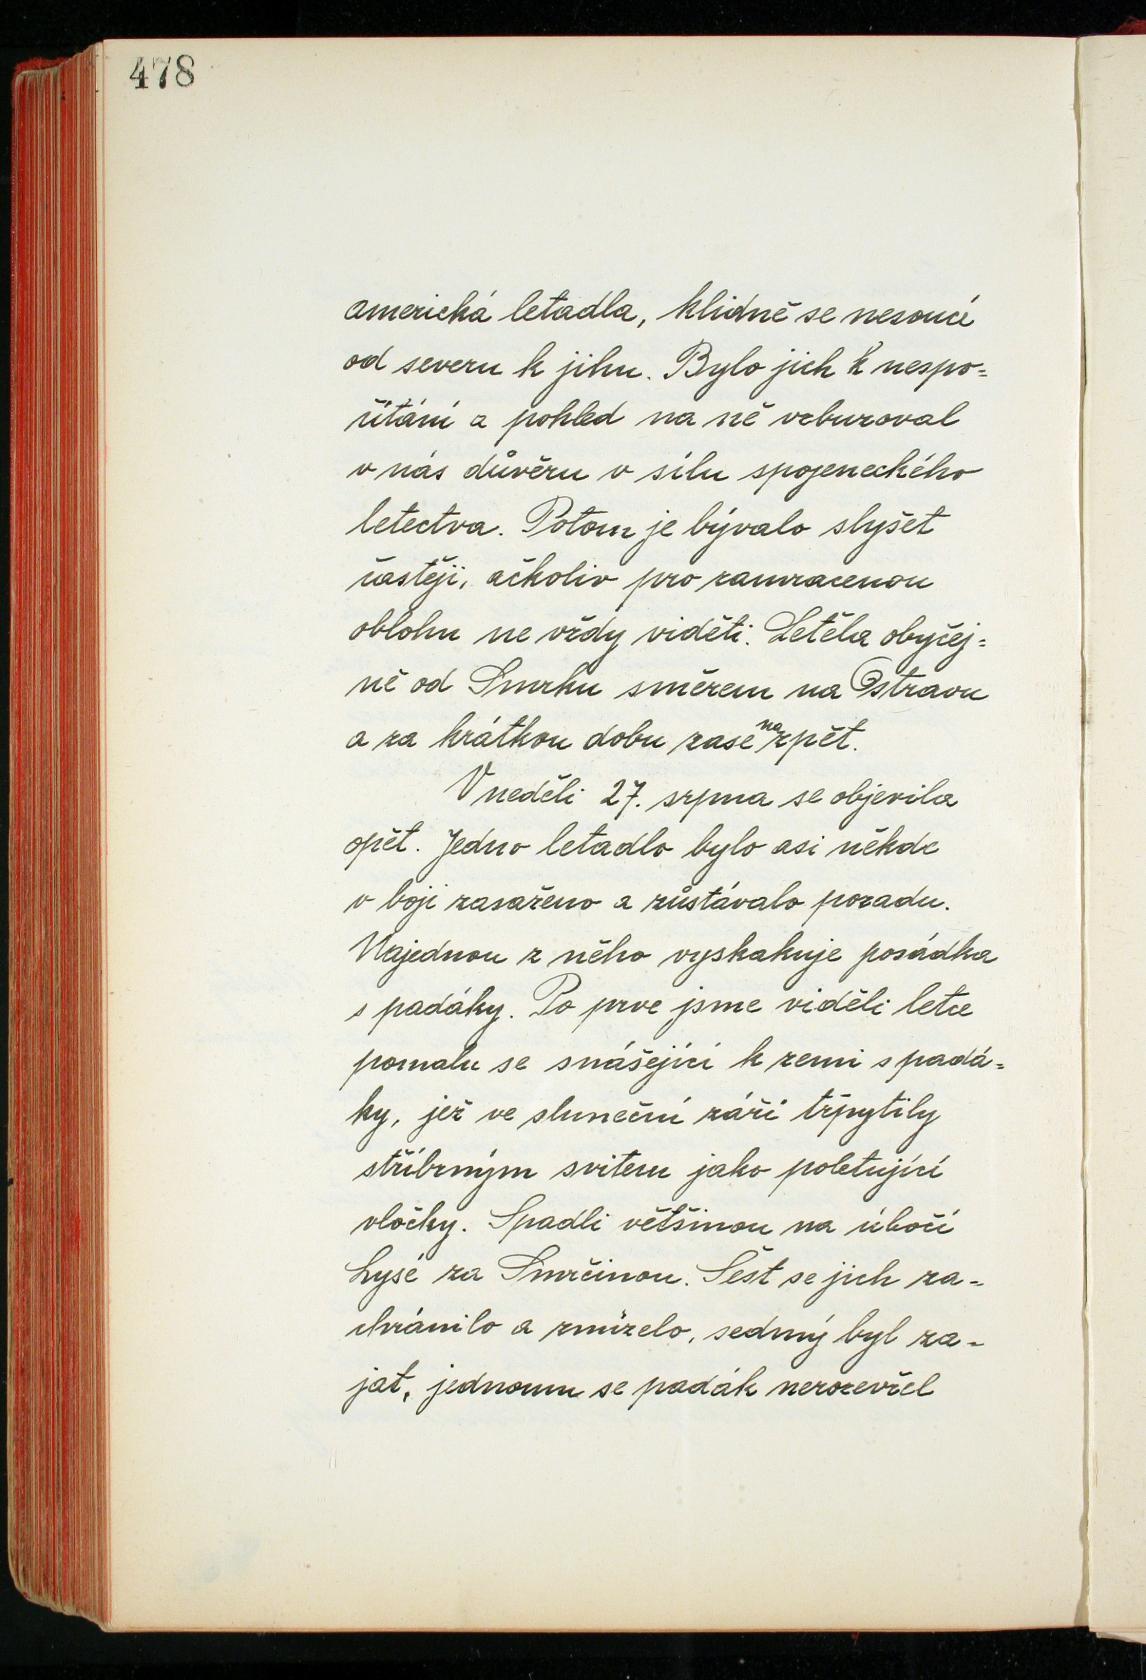 478
americká letadla, klidně se nesoucí
od severu k jihu. Bylo jich k nespo=
čítání a pohled na ně vzbuzoval
v nás důvěru v sílu spojeneckého
letectva. Potom je bývalo slyšet
častěji, ačkoliv pro zamracenou
oblohu ne vždy viděti. Letěla obyčej=
ně od Smrku směrem na Ostravu
a za krátkou dobu zase nazpět.
V neděli 27. srpna se objevila
opět. Jedno letadlo bylo asi někde
v boji zasaženo a zůstávalo pozadu.
Najednou z něho vyskakuje posádka
s padáky. Po prve jsme viděli letce
pomalu se snášející k zemi s padá=
ky, jež ve sluneční záři třpytily
stříbrným svitem jako poletující
vločky. Spadli většinou na úbočí
Lysé za Smrčinou. Šest se jich za-
chránilo a zmizelo, sedmý byl za-
jat, jednomu se padák nerozevřel